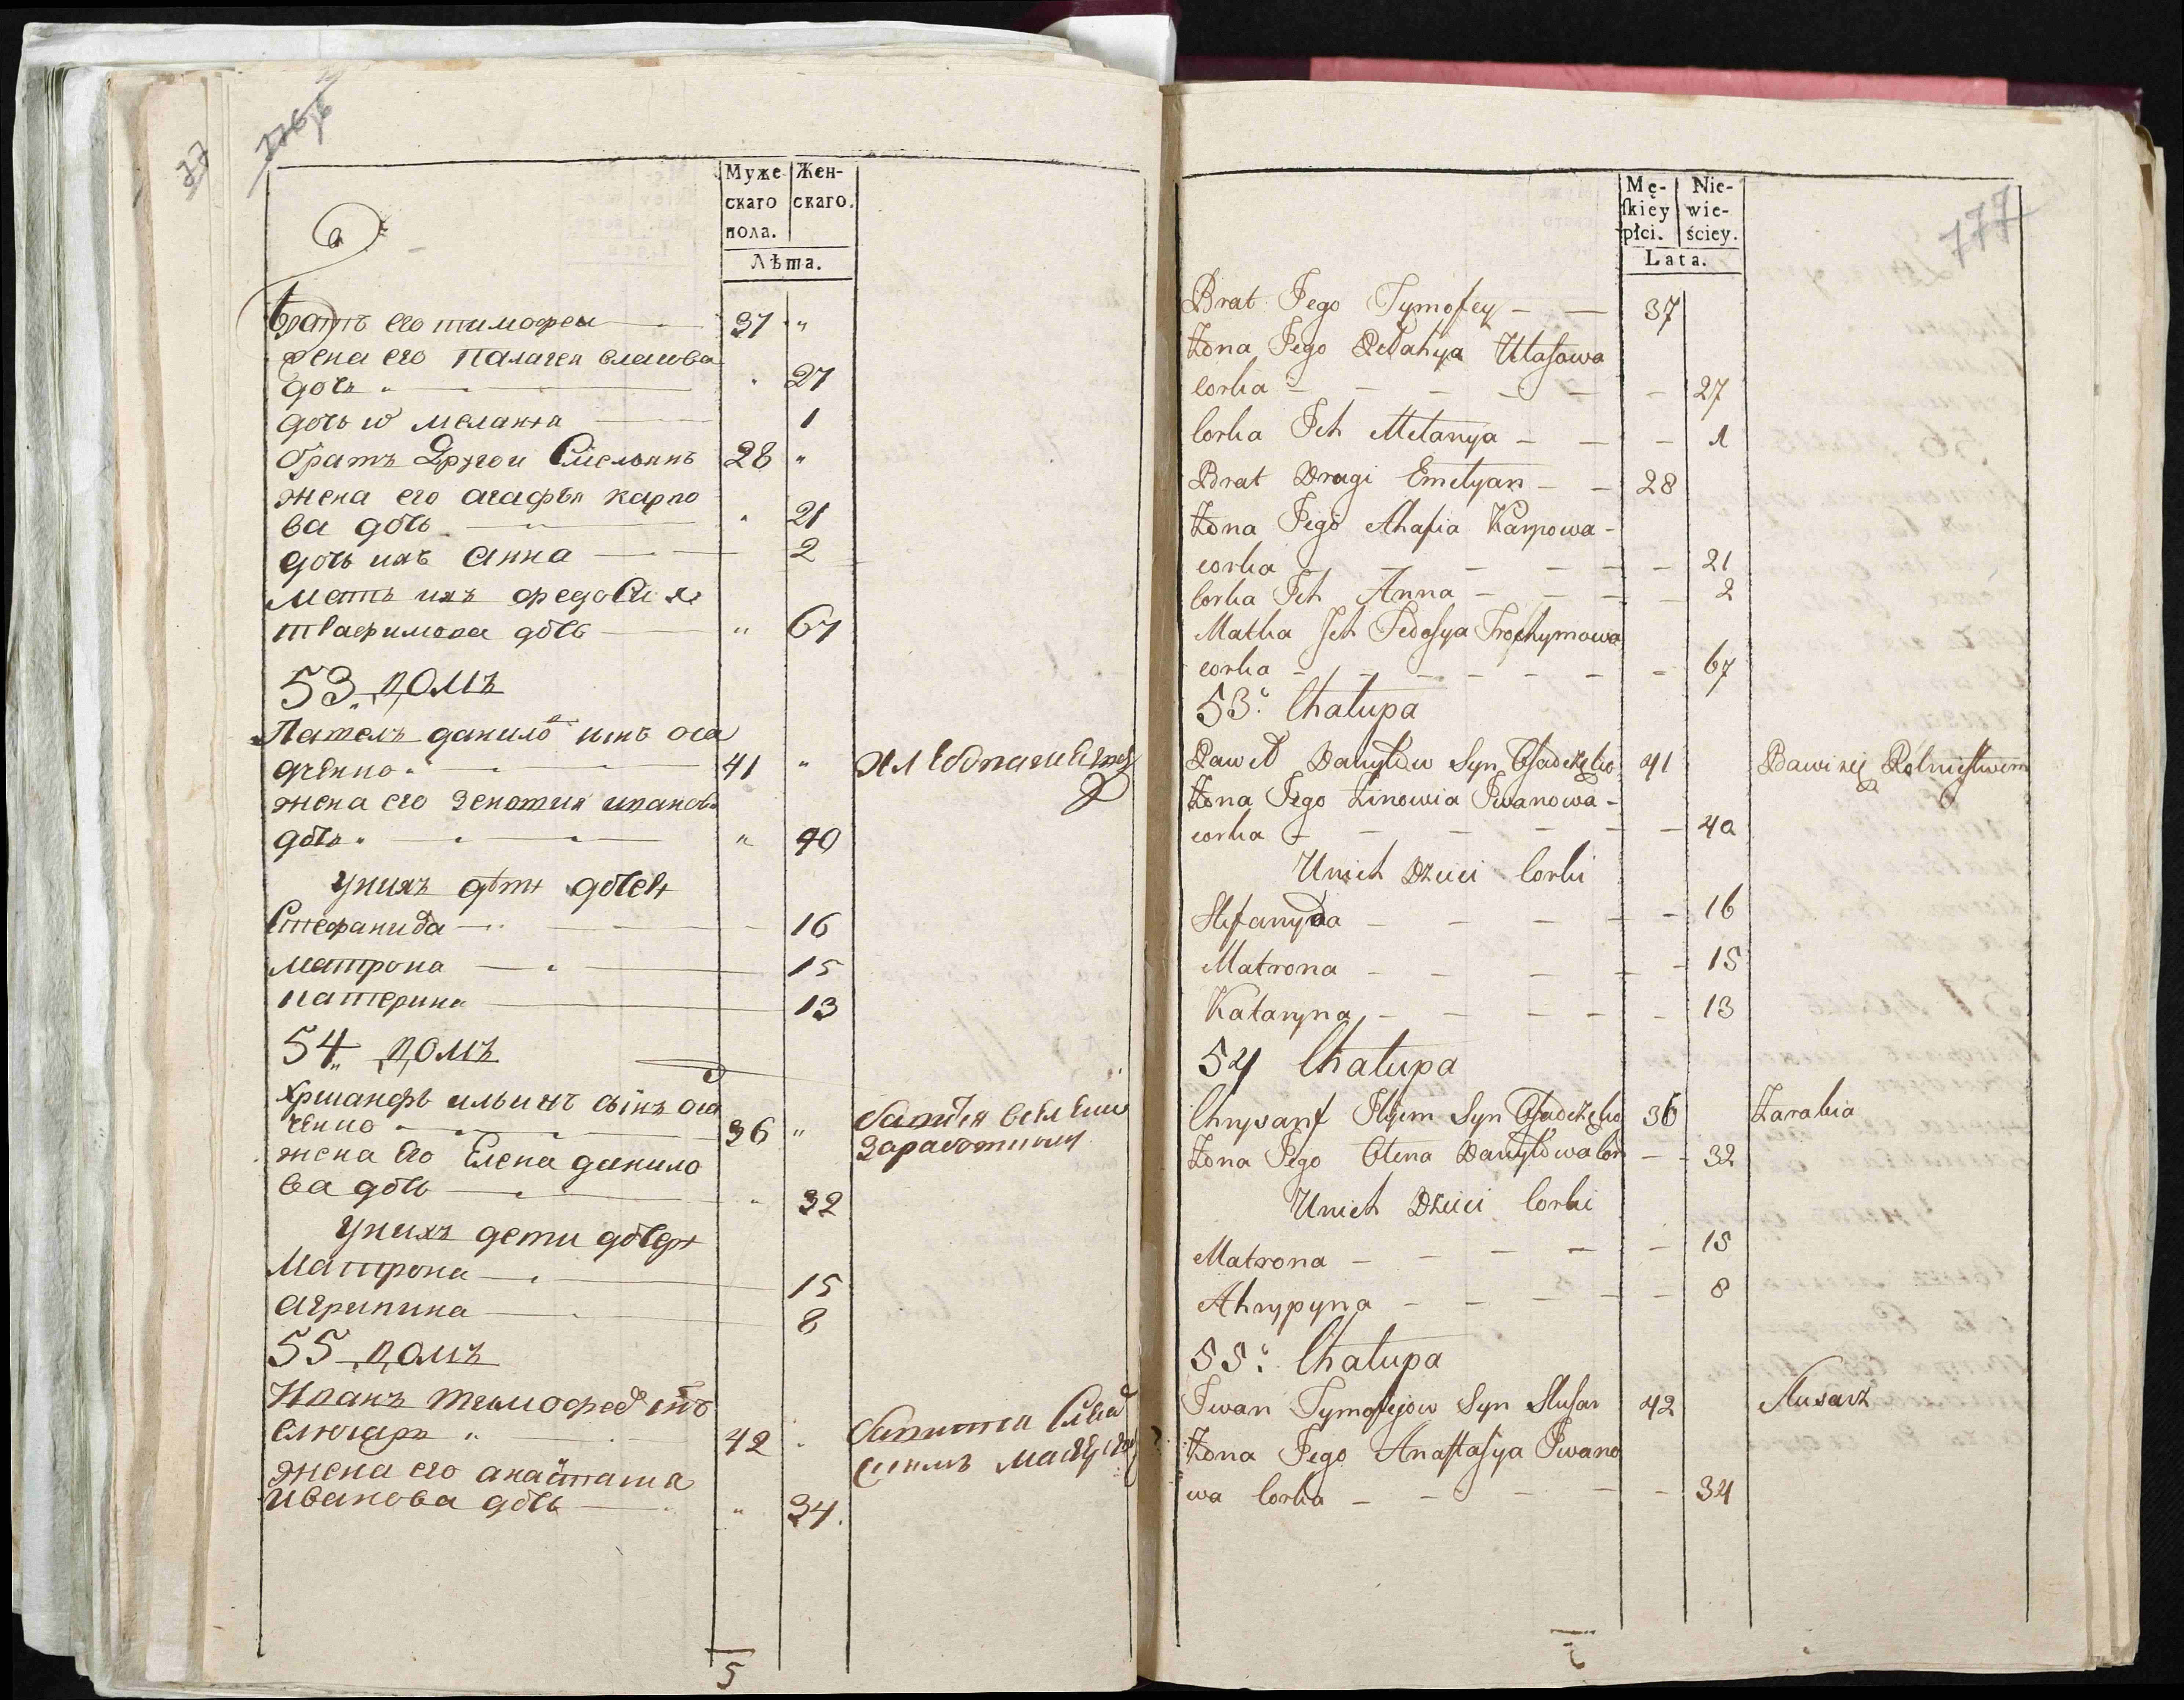 77
776
Муже
скаго
пола.
Жен-
скаго.
Лѣта.
братъ его тимофеи 37 "
жена его Палагея власова
дочь " 27
дочь их мелания 1
братъ Другои Емельянъ 28 "
жена его агафья карпо
ва дочь " 21
дочь ихъ анна 2
мать ихъ федосия
трафимова дочь " 67
53. домъ
Павелъ данилов сынъ оса
дченко 41 "
жена его Зеновия иванова
дочь " 40
у нихъ дѣти дочери
Стефанида 16
Матрона 15
Катерина 13
54 домъ
Хрисанфъ ильинъ сынъ оса
ченко 36 "
заработками
жена его Елена данило
ва дочь " 32
у нихъ дети дочери
Матрона 15
агрипина 8
55 домъ
Иванъ тимофеев снъ
слюсарь " 42
жена его анастасия
Иванова дочь " 34.
5
777
Mę-
skiey
płci.
Nie-
wie-
ściey.
Lata.
Brat Jego Tymofey 37
Żona Jego Pelahya Ułasowa
corka 27
Corka Ich Mełanya 1
Brat Drugi Emelyan 28
Żona Jego Ahafia Karpowa
corka 21
Corka Ich Anna 2
Matka Ich Fedosya Trochymowa
corka 67
53. Chałupa
Paweł Danyłow Syn Osadczęko 41 Bawi się Rolnictwem
Żona Jego Zinowia Iwanowa
corka 40
U nich Dzieci Corki
Stefanyda 16
Matrona 15
Kataryna 13
54 Chałupa
Chrysanf Iljin Syn Osadczęko 36 Zarabia
Żona Jego Ołena Danyłowa Cor 32
U nich Dzieci Corki
Matrona 15
Ahrypyna 8
55. Chałupa
Iwan Tymofijow Syn Slusar 42 Slusarz
Żona Jego Anastasya Iwano
wa Corka 34